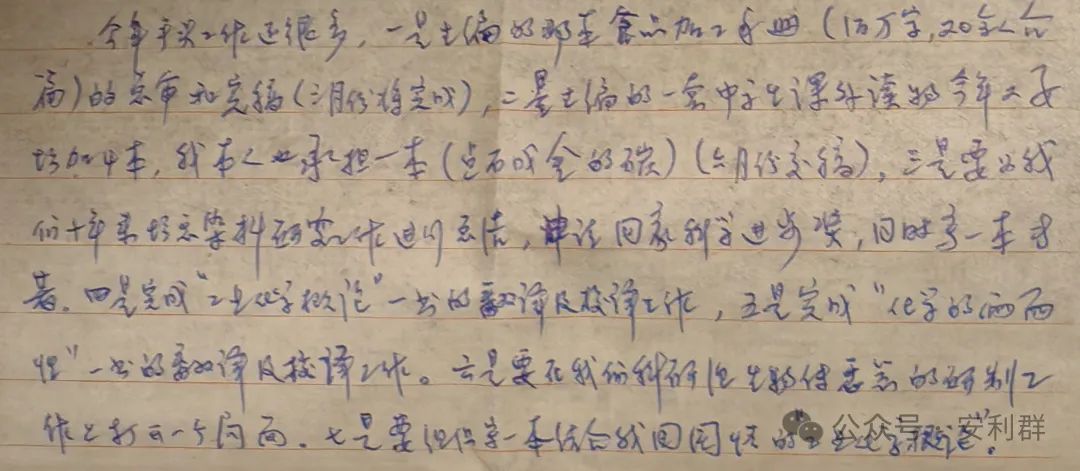 今年要求工作还很多,一是主编的那本食品加工手册(160万字,20余人合
编)的总审和完稿(三月份将完成),二是主编的一套中学生课外读物今年又要
增加4本,我本人也承担一本(点石成金的碳)(六月份交稿),三是要对我
们十年来的染料研究工作进行总结,申请国家科学进步奖,同时写一本专
著。四是完成“工业化学概论”一书的翻译及校译工作,五是完成“化学的两面
性”一书的翻译及校译工作。六是要在我们科研的生物传感器的研制工
作上打开一个局面。七是要组织写一本结合我国国情的“工业化学概论”。
公众号·安利群